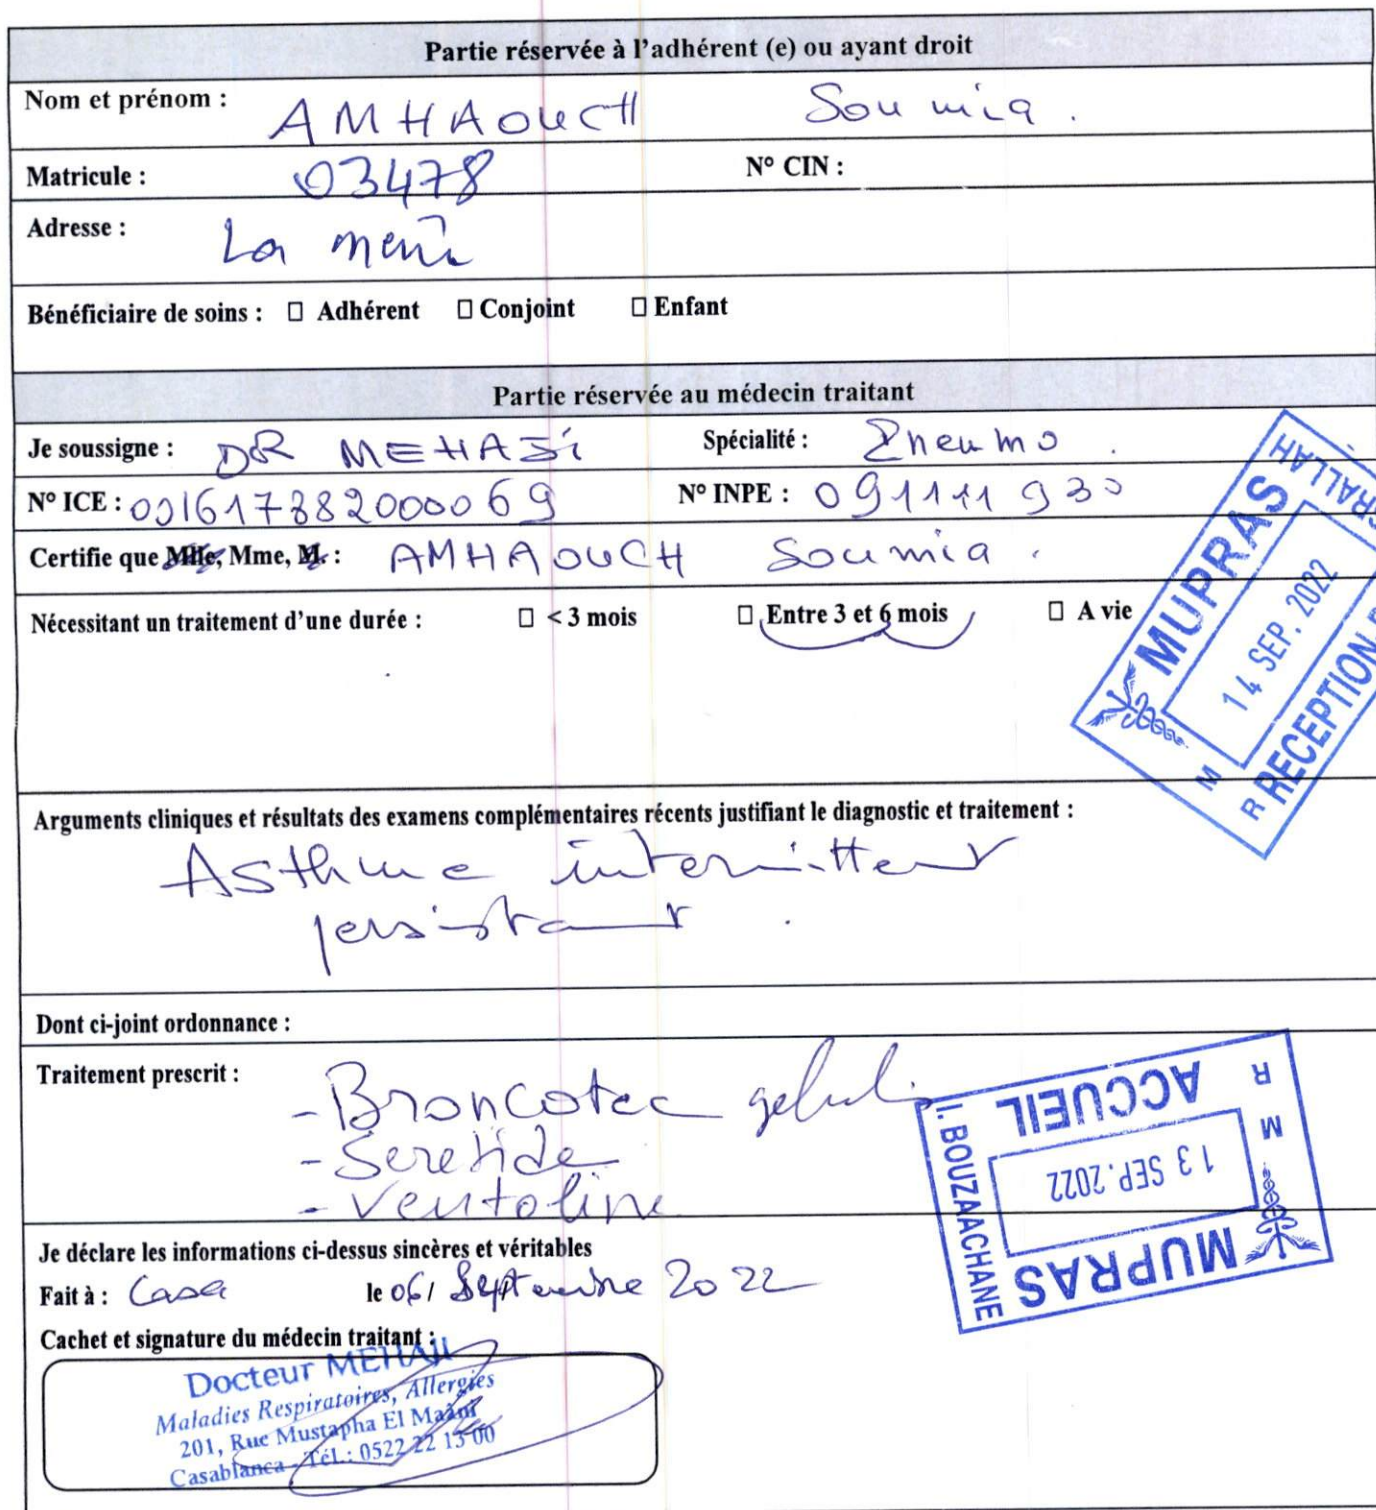 Partie réservée à l'adhérent (e) ou ayant droit
Nom et prénom : AMHAOUCH Soumia.
Matricule : 03478 N° CIN :
Adresse : La meme
Bénéficiaire de soins : □ Adhérent □ Conjoint □ Enfant
Partie réservée au médecin traitant
Je soussigne : DR MEHAJi Spécialité : Pneumo.
N° ICE : 001617882000069 N° INPE : 091111930
Certifie que Mlle, Mme, M. : AMHAOUCH Soumia.
Nécessitant un traitement d'une durée : □ < 3 mois □ Entre 3 et 6 mois □ A vie
MUPRAS
14 SEP. 2022
RECEPTION
M
R
Arguments cliniques et résultats des examens complémentaires récents justifiant le diagnostic et traitement :
Asthme intermittent
persistant.
Dont ci-joint ordonnance :
Traitement prescrit :
- Broncotec gelul.
- Seretide
- Ventoline
ACCUEIL
13 SEP. 2022
I. BOUZAACHANE
MUPRAS
R M
Je déclare les informations ci-dessus sincères et véritables
Fait à : Casa le 06/ Septembre 2022
Cachet et signature du médecin traitant :
Docteur MEHAJI
Maladies Respiratoires, Allergies
201, Rue Mustapha El Maâni
Casablanca - Tél.: 0522 22 13 00